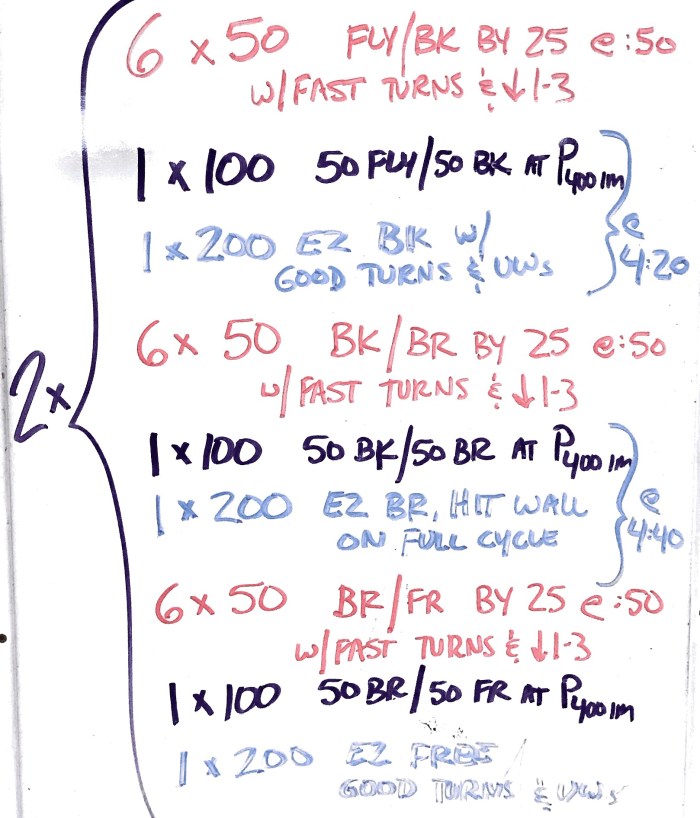 6 x 50 FLY/BK BY 25 @:50
w/FAST TURNS & ↓1-3
1 x 100 50 FLY/50 BK AT P400 IM
1 x 200 EZ BK w/
GOOD TURNS & UWs
@
4:20
6 x 50 BK/BR BY 25 @:50
w/FAST TURNS & ↓1-3
2x
1 x 100 50 BK/50 BR AT P400 IM
1 x 200 EZ BR, HIT WALL
ON FULL CYCLE
@
4:40
6 x 50 BR/FR BY 25 @:50
w/FAST TURNS & ↓1-3
1 x 100 50 BR/50 FR AT P400 IM
1 x 200 EZ FREE
GOOD TURNS & UWs